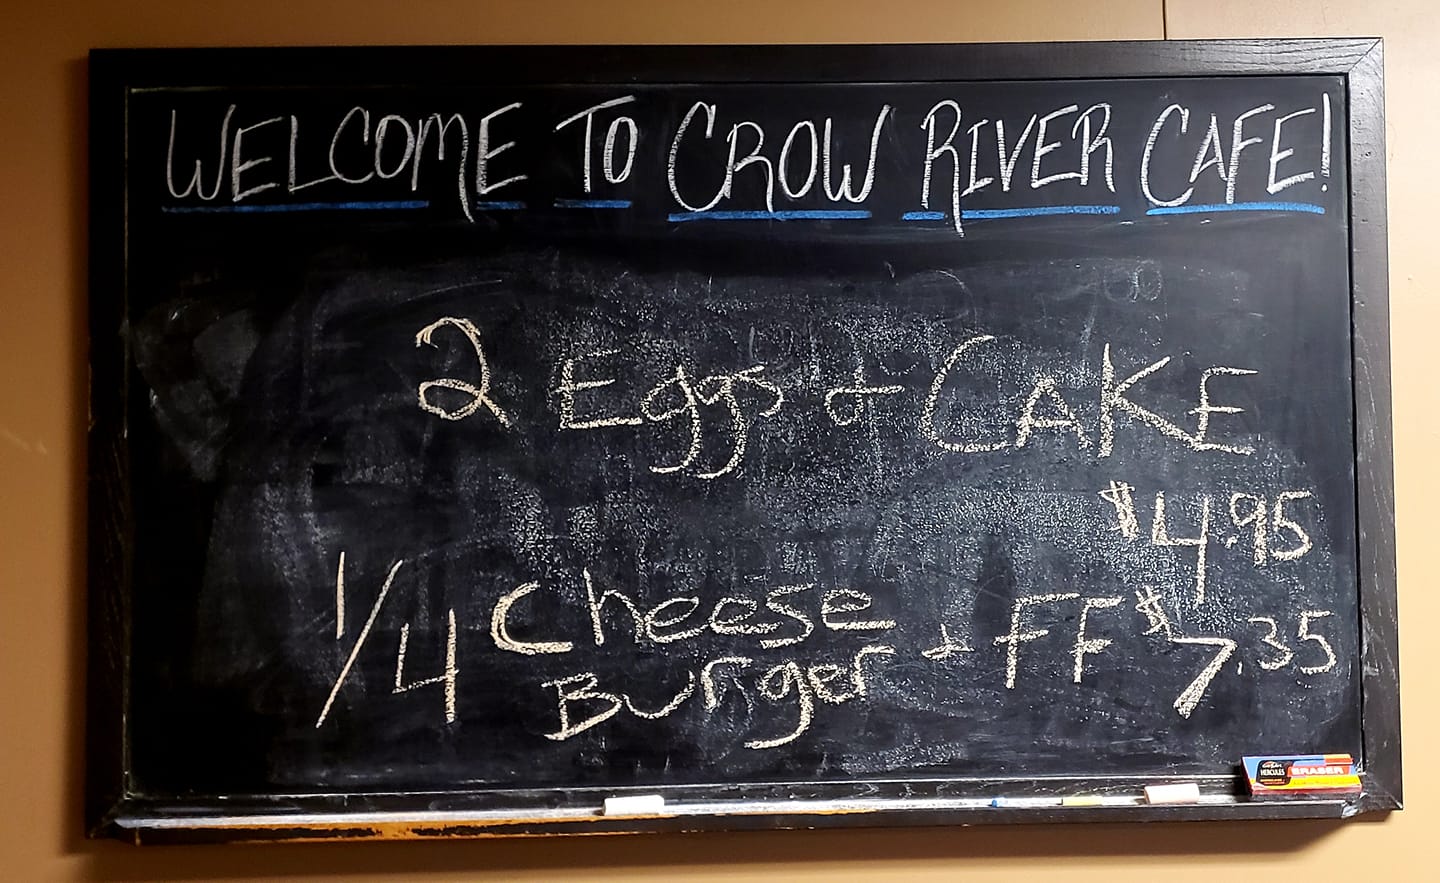 WELCOME TO CROW RIVER CAFE!
2 Eggs + CAKE
$4.95
1/4 Cheese Burger + FF $7.35
HERCULES ERASER